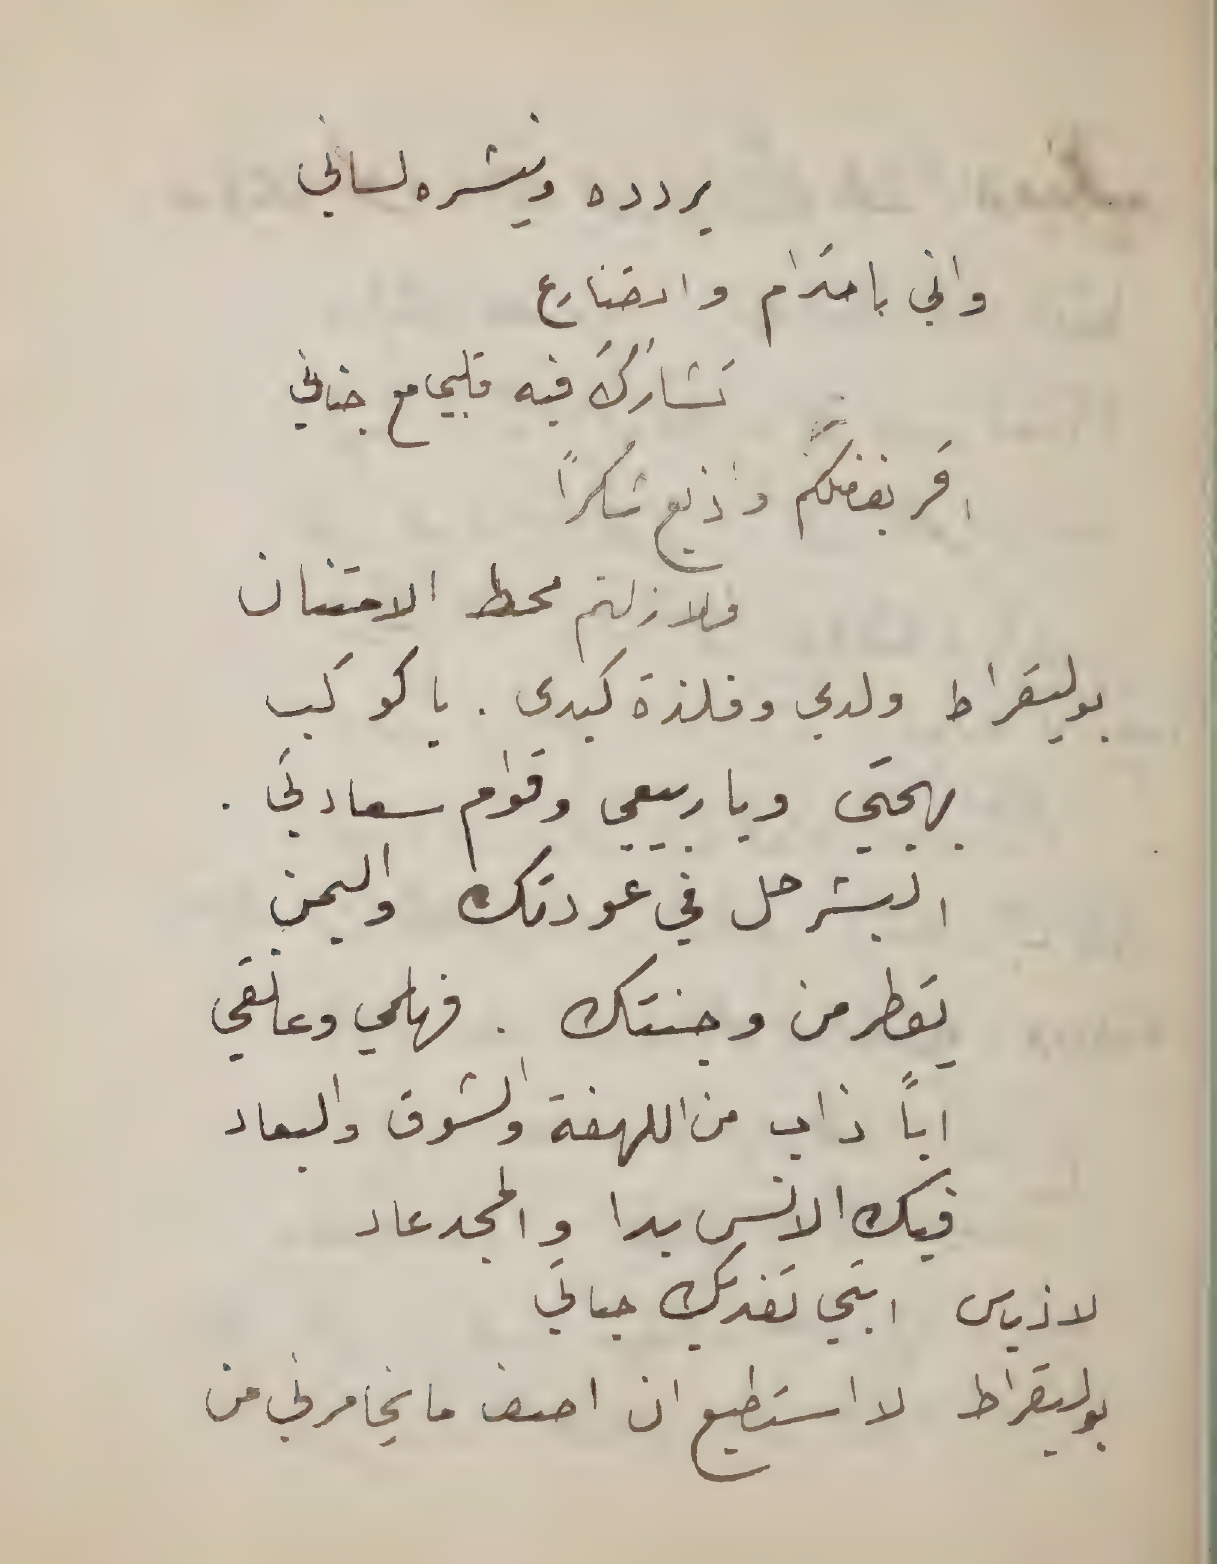 يردده وينشره لساني
واني باحترام واتضاع
تشارك فيه قلبي مع جناني
اقر بفضلكم واذيع شكراً
فلازلتم محط الامتنان
بوليقراط ولدي وفلذة كبدى . يا كوكب
بهجتي ويا ربيعي وقوام سعادتي .
البشر حل في عودتك واليمن
يقطر من وجنتك . فهلمي وعانقي
اباً ذاب من اللهفة والشوق والبعاد
فيك الانس بدا والمجد عاد
لاذياس ابتي تفديك حياتي
بوليقراط لا استطيع ان اصف ما يخامرني من